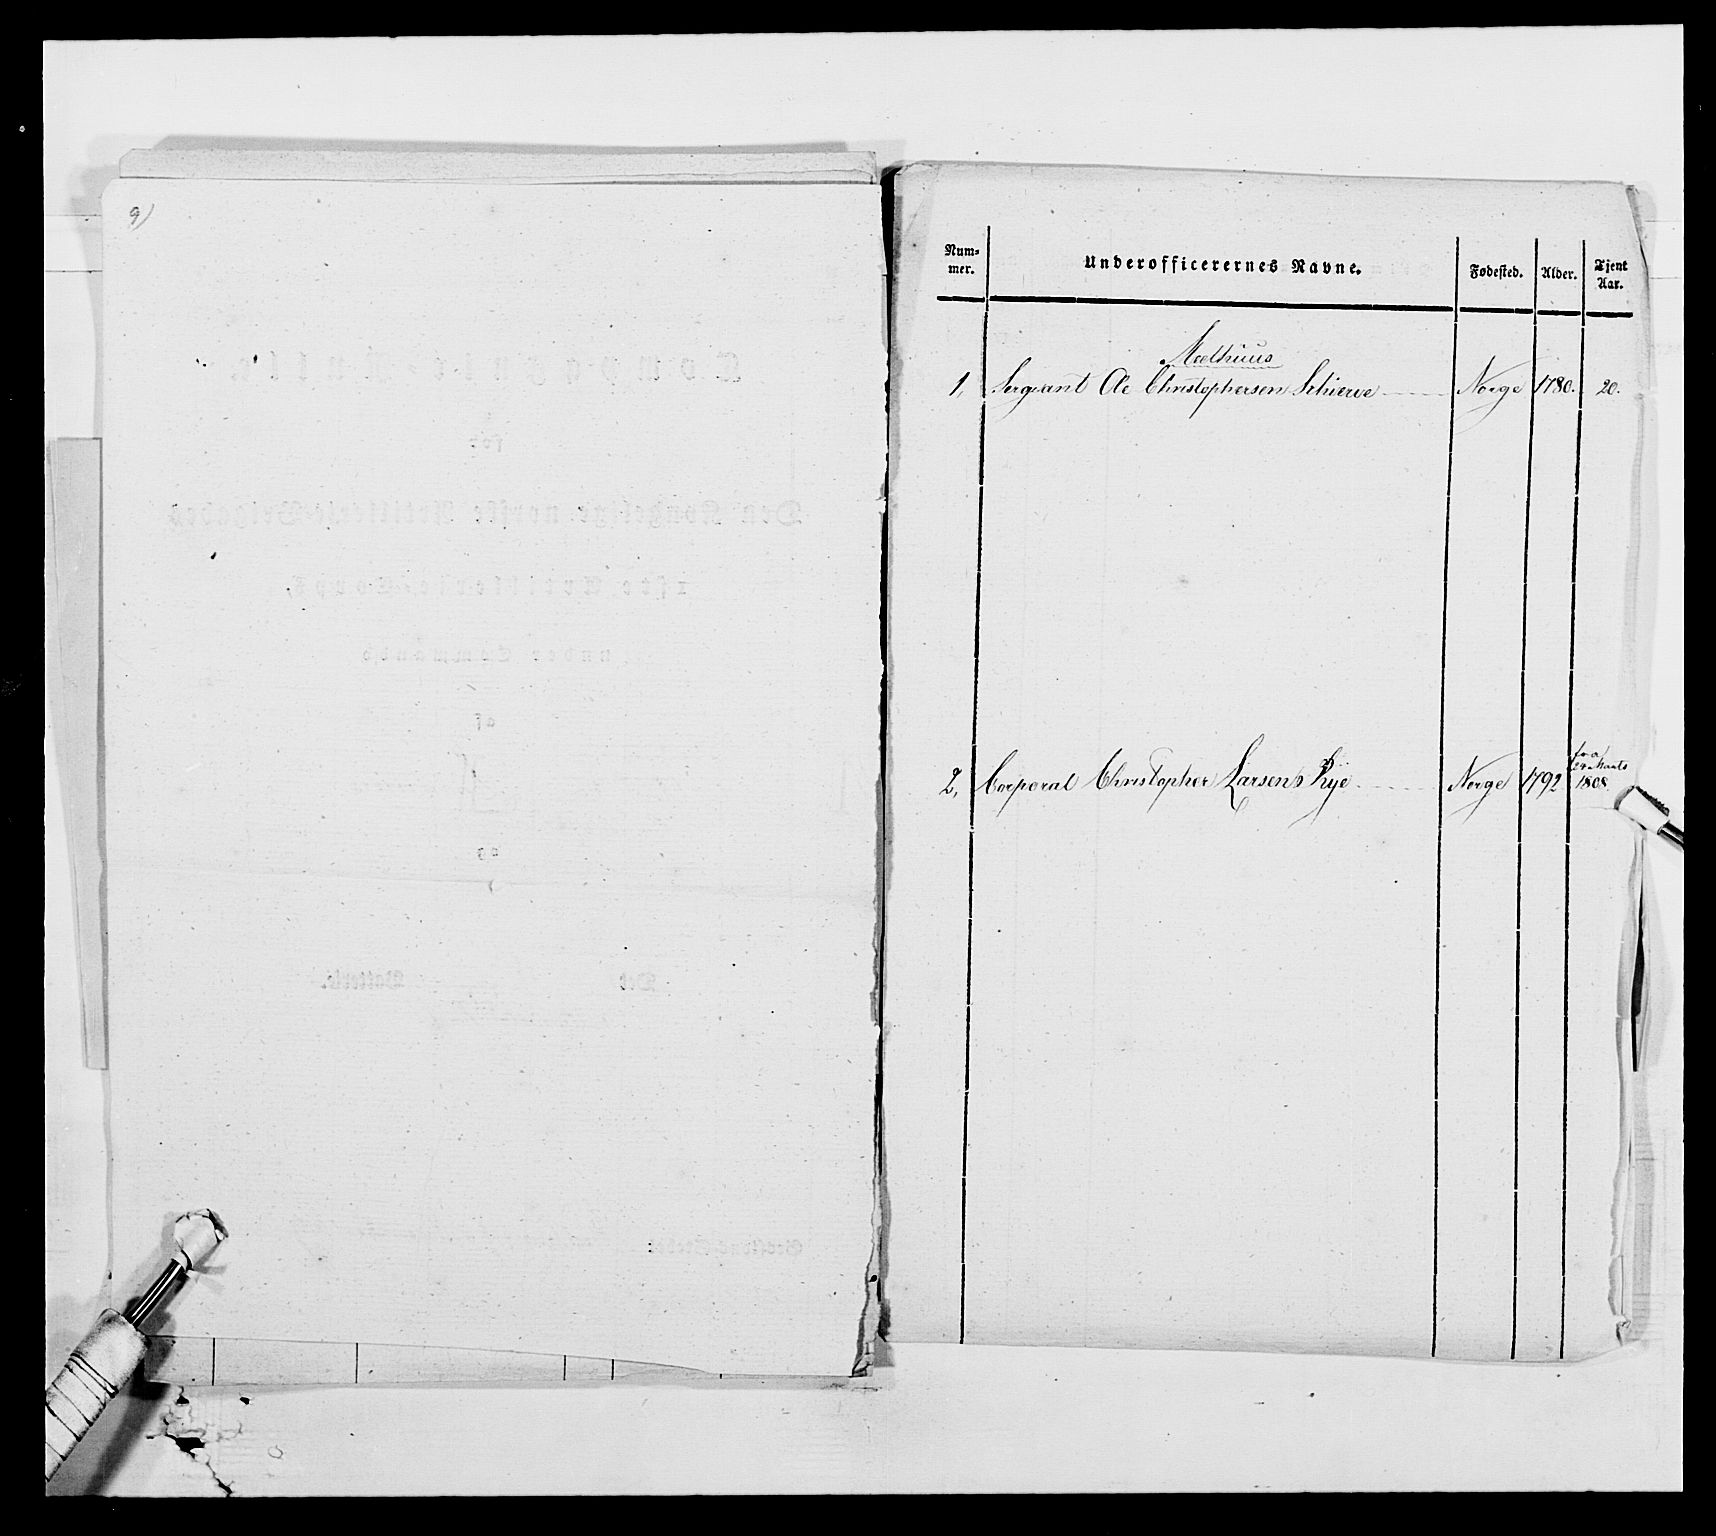 9)
Num-
mer.
Underofficerernes Navne.
Fødested.
Alder.
Tjent
Aar.
Mælhuus
1, Sergeant Ole Christophersen Schierve Norge 1780. 20.
fra
24 Marts
2, Corporal Christopher Larsen Rye Norge 1792 1808